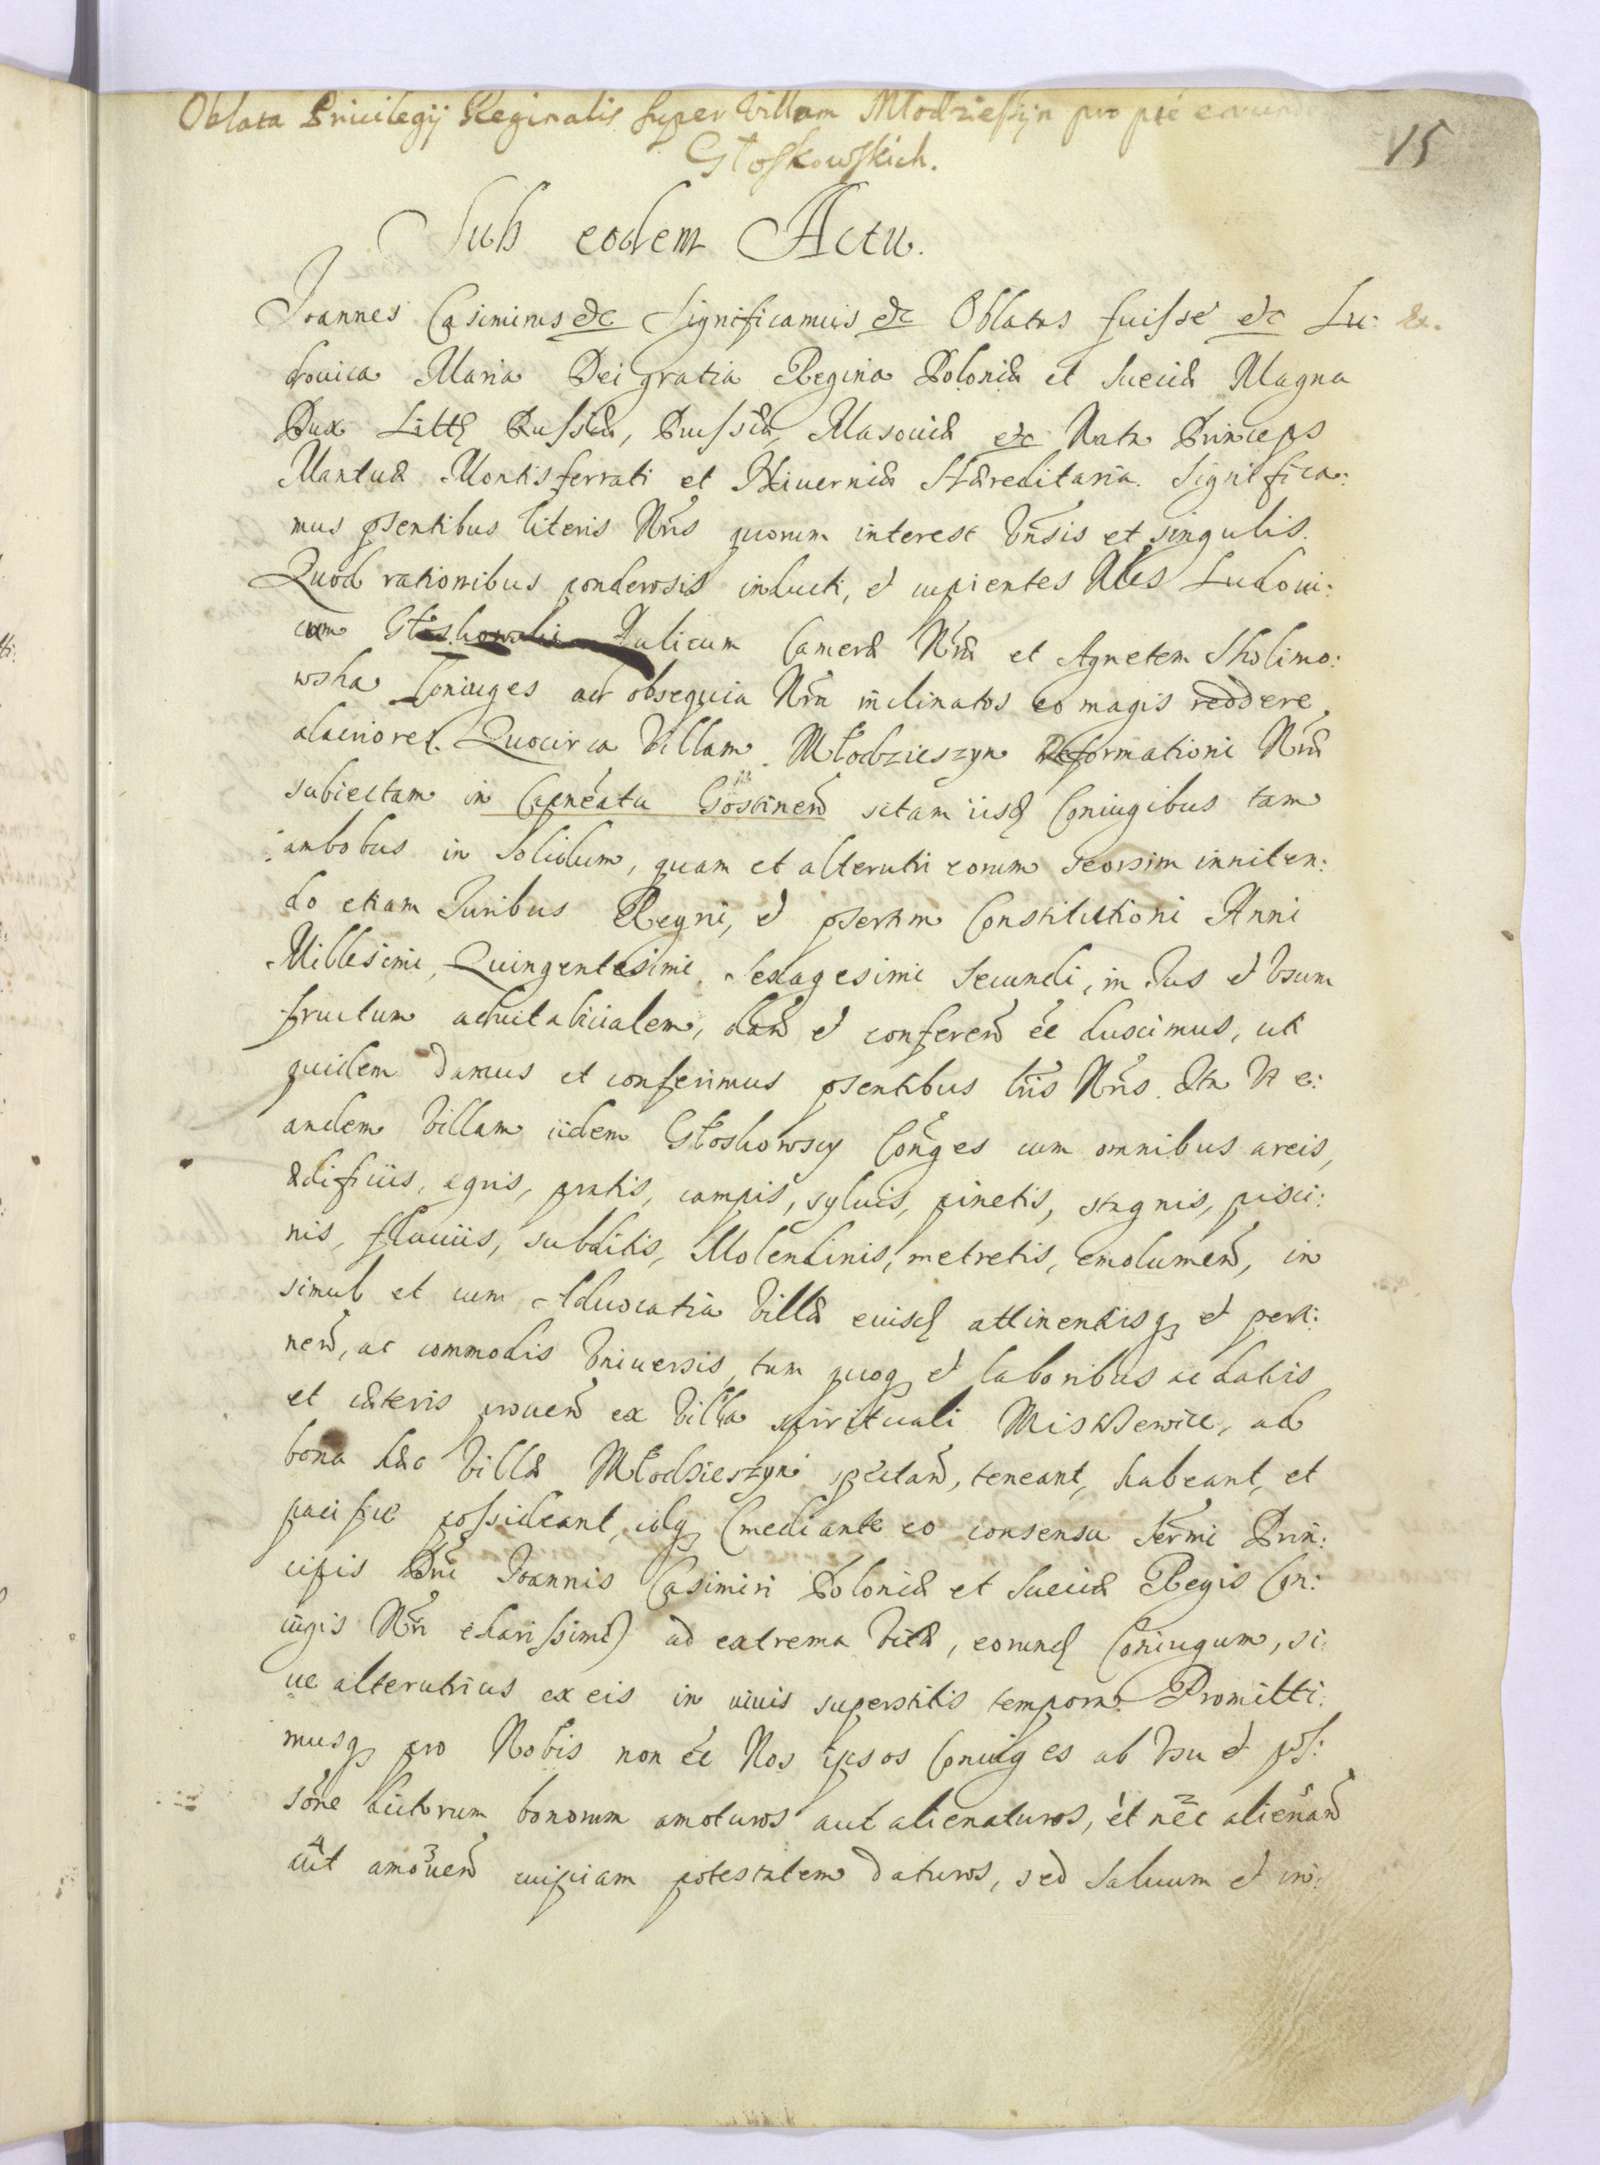 Oblata Priuilegij Reginalis super Villam Młodzieszyn pro pte
Głoskowskich.
15
Sub eodem Actu.
Joannes Casimirus etc Significamus etc Oblatas fuisse etc Lu:
douica Maria Dei gratia Regina Poloniæ et Sueciæ Magna
Dux Litt Russiæ, Prussiæ, Masouiæ etc Nata Princeps
Mantuæ Montisferrati et Niuerniæ Hæreditaria. Significa:
mus psentibus literis Nris quorum interest Vnsis et singulis.
Quod rationibus ponderosis inducti, et cupientes Nles Ludoui:
cum Głoskowski Aulicum Cameræ Nræ et Agnetem Skolimo:
wska Coniuges ad obsequia Nra inclinatos eo magis reddere
alacriores. Quocirca Villam Młodzieszyn Reformationi Nræ
subiectam in Capneatu Gostinen sitam iisq Coniugibus tam
ambobus in solidum, quam et alterutri eorum seorsim inniten:
do etiam Juribus Regni, et psertim Constitutioni Anni
Millesimi, Quingentesimi Sexagesimi Secundi, in Jus et Vsum
fructum aduitalitialem, dan et conferen ée duximus, uti
quidem damus et conferimus psentibus lris Nris. Ita Vt e:
andem Villam iidem Głoskowscy Conges cum omnibus areis,
ædificiis, agris, pratis, campis, syluis, pinetis, stagnis, pisci:
nis, fluuiis, subditis, Molendinis, metretis, emolumen, in
simul et cum Aduocatia Villæ eiusq attinentiisq et perti:
nen, ac commodis Vniuersis, tum quoq et laboribus ac datiis
et cæteris prouen ex Villa spirituali Miswewice, ad
bona hæc Villæ Młodzieszyn spectan, teneant, habeant, et
pacifice possideant, idq (mediante eo consensu Sermi Prin:
cipis Dni Joannis Casimiri Poloniæ et Sueciæ Regis Con:
iugis Nri charissimi) ad extrema Vitæ, eorunq Coniugum, si:
ue alterutrius ex eis in uiuis superstitis tempora. Promitti:
musq pro Nobis non ée Nos ipsos Coniuges ab Vsu et pos:
sone dictorum bonorum amoturos aut alienaturos, et nec alienan
aut amouen cuipiam potestatem daturos, sed Saluum et in: